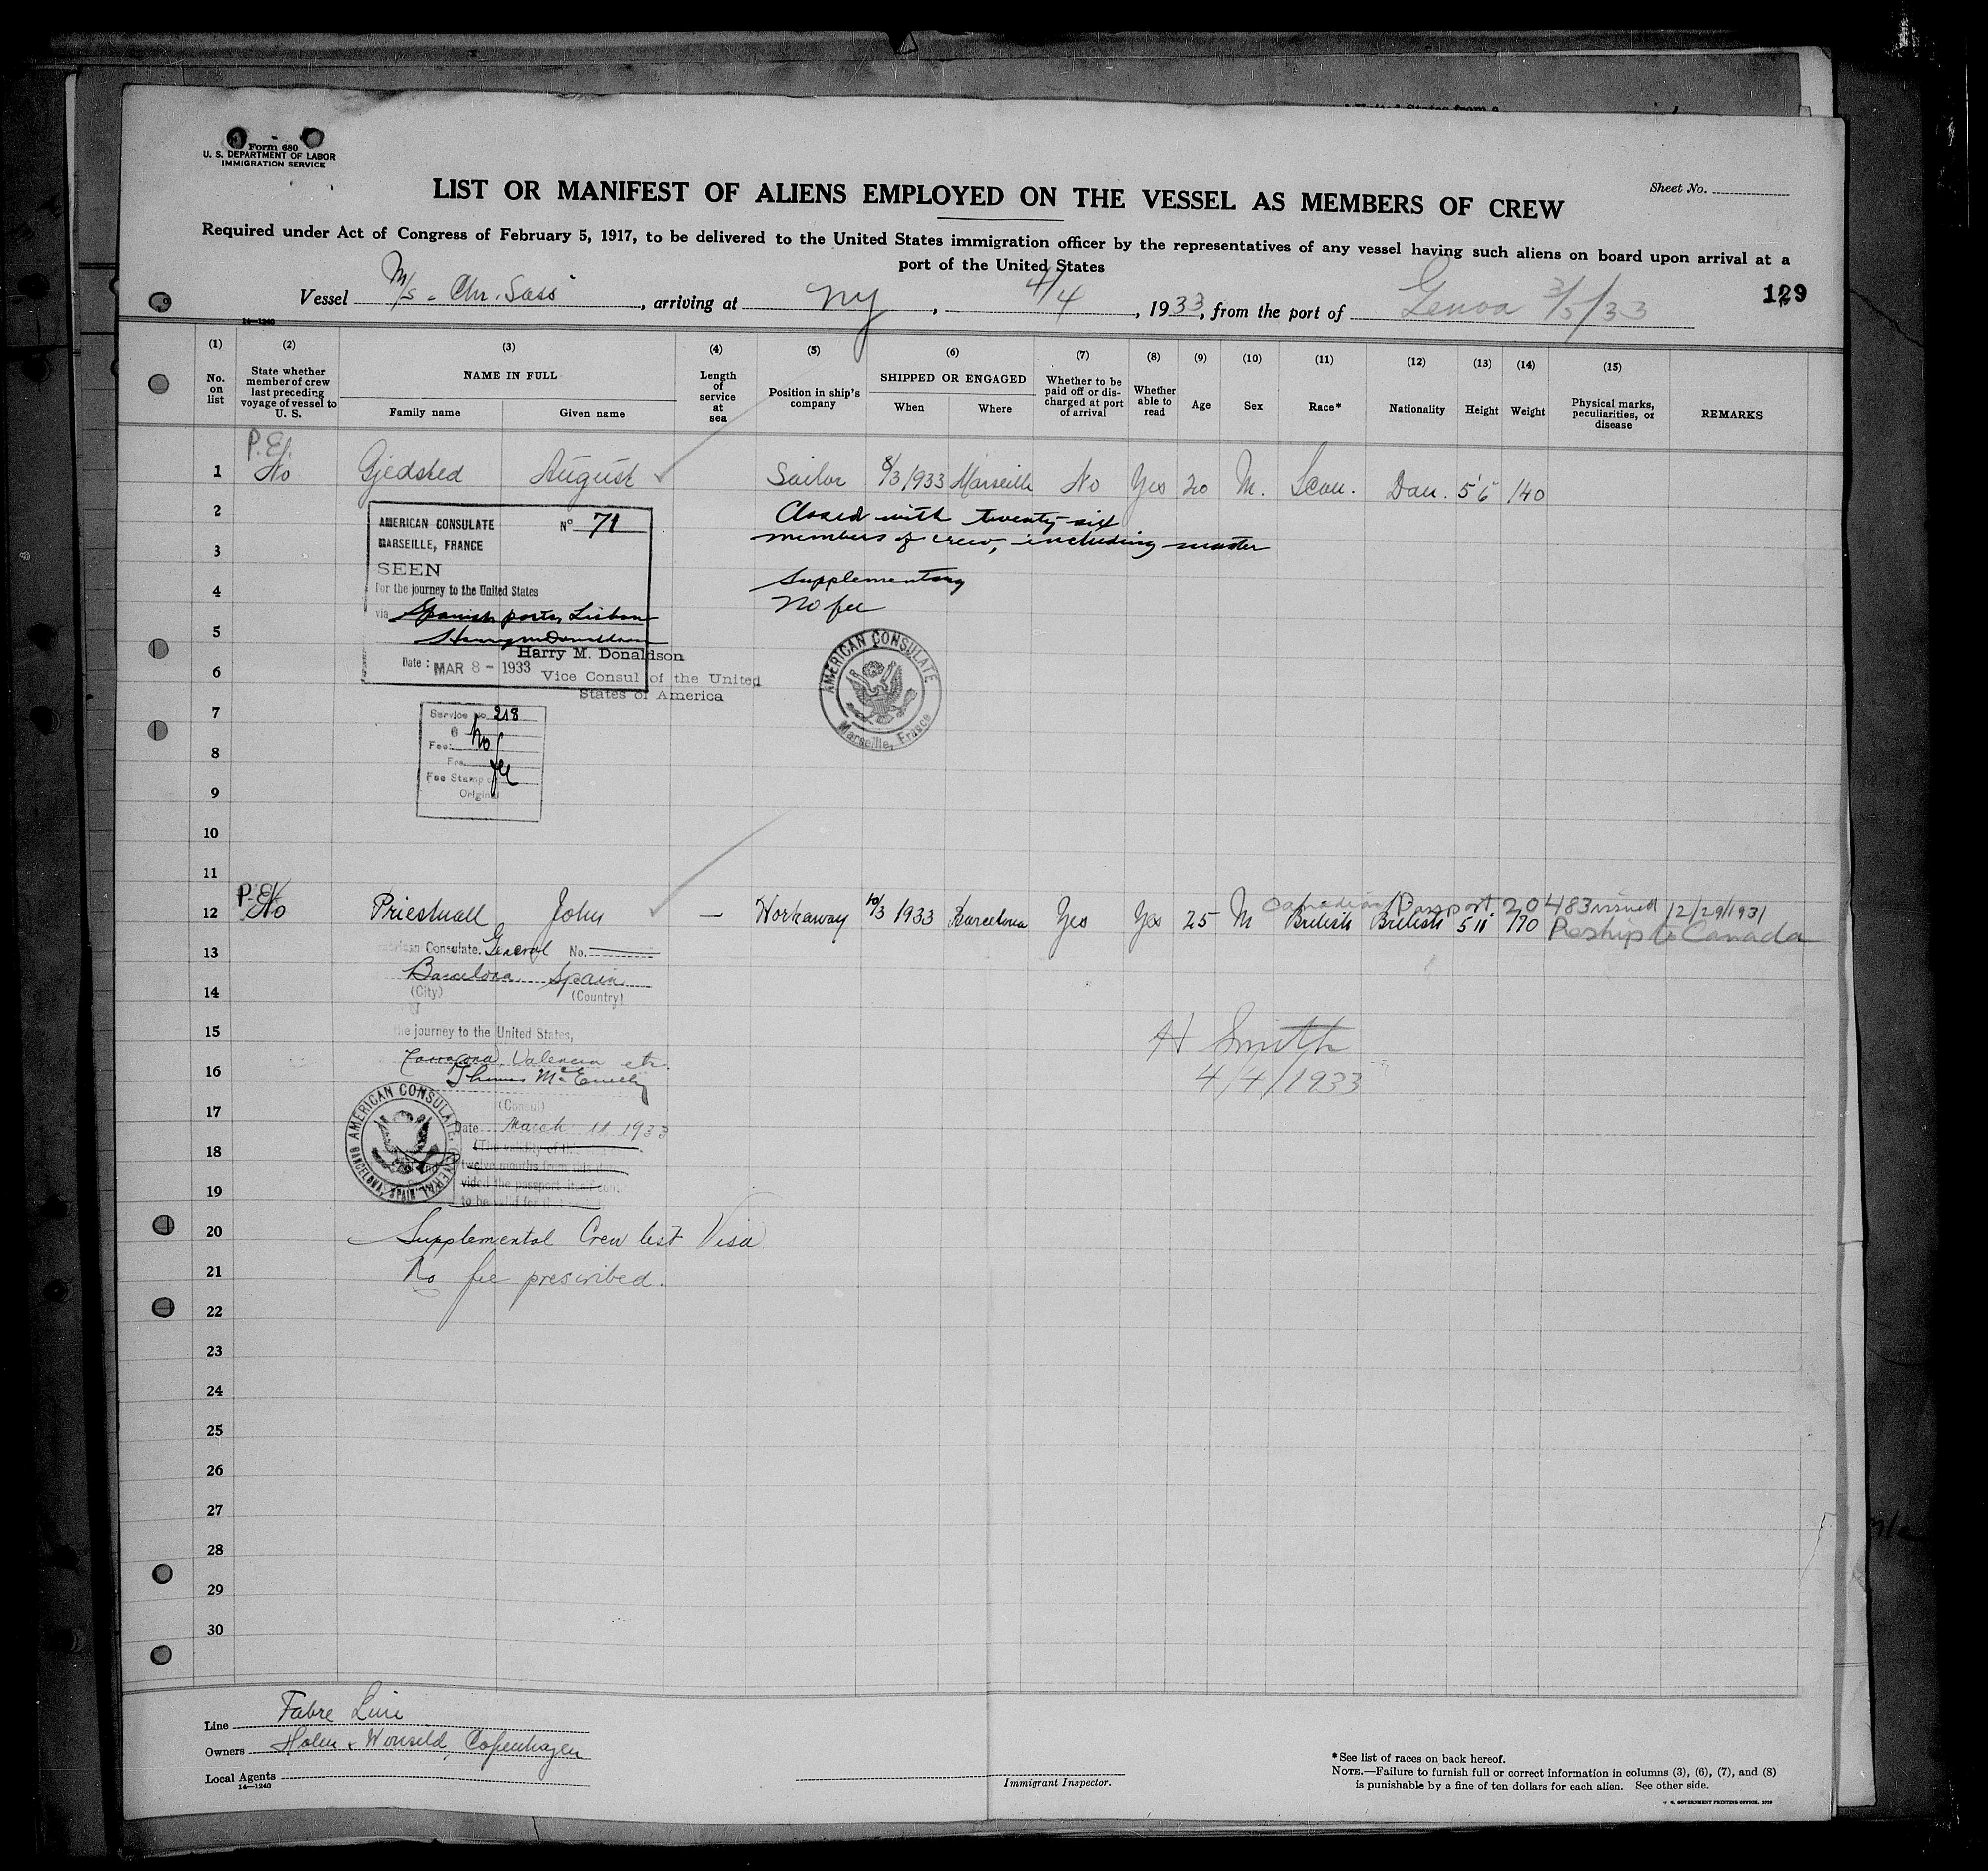 Form 680
U. S. DEPARTMENT OF LABOR
IMMIGRATION SERVICE
Sheet No.
LIST OR MANIFEST OF ALIENS EMPLOYED ON THE VESSEL AS MEMBERS OF CREW
Required under Act of Congress of February 5, 1917, to be delivered to the United States immigration officer by the representatives of any vessel having such aliens on board upon arrival at a
port of the United States
Vessel M/s. Chr. Sass, arriving at NY, 4/4, 1933, from the port of Genoa 3/5/33
129
14—1240
(1) (2) (3) (4) (5) (6) (7) (8) (9) (10) (11) (12) (13) (14) (15)
No. on list
State whether member of crew last preceding voyage of vessel to U. S.
NAME IN FULL
Family name
Given name
Length of service at sea
Position in ship's company
SHIPPED OR ENGAGED
When
Where
Whether to be paid off or discharged at port of arrival
Whether able to read
Age
Sex
Race*
Nationality
Height
Weight
Physical marks, peculiarities, or disease
REMARKS
P.El.
1 No Gjedsted August Sailor 8/3 1933 Marseille No Yes 20 M. Scan. Dan. 5'6 140
2
Closed with twenty-six
members of crew, including master
3
Supplementary
4
No fee
5
6
7
8
9
10
11
AMERICAN CONSULATE No 71
MARSEILLE, FRANCE
SEEN
for the journey to the United States
via Spanish ports, Lisbon
Harry M. Donaldson
Harry M. Donaldson
Date: MAR 8 - 1933 Vice Consul of the United
States of America
AMERICAN CONSULATE
Marseille, France
Service No 218
Fee: No
fee
Fee Stamp on
Original
P.El.
Canadian Passport 20483 issued 12/29/1931
12 No Priestnall John — Workaway 10/3 1933 Barcelona Yes Yes 25 M British British 5 11" 170 Reship to Canada
13
American Consulate General No.
Barcelona Spain
14
(City) (Country)
15
the journey to the United States,
Tarragona, Valencia etc.
16
(Consul)
17
Date March 11 1933
18
(The validity of this
twelve months from this date
19
vided the passport itself
to be valid for that
AMERICAN CONSULATE GENERAL
BARCELONA, SPAIN
H Smith
4/4/1933
20
Supplemental Crew list Visa
21
No fee prescribed.
22
23
24
25
26
27
28
29
30
Line Fabre Line
Owners Holm & Wonsild, Copenhagen
Local Agents
14—1240
Immigrant Inspector.
*See list of races on back hereof.
NOTE.—Failure to furnish full or correct information in columns (3), (6), (7), and (8)
is punishable by a fine of ten dollars for each alien. See other side.
GOVERNMENT PRINTING OFFICE